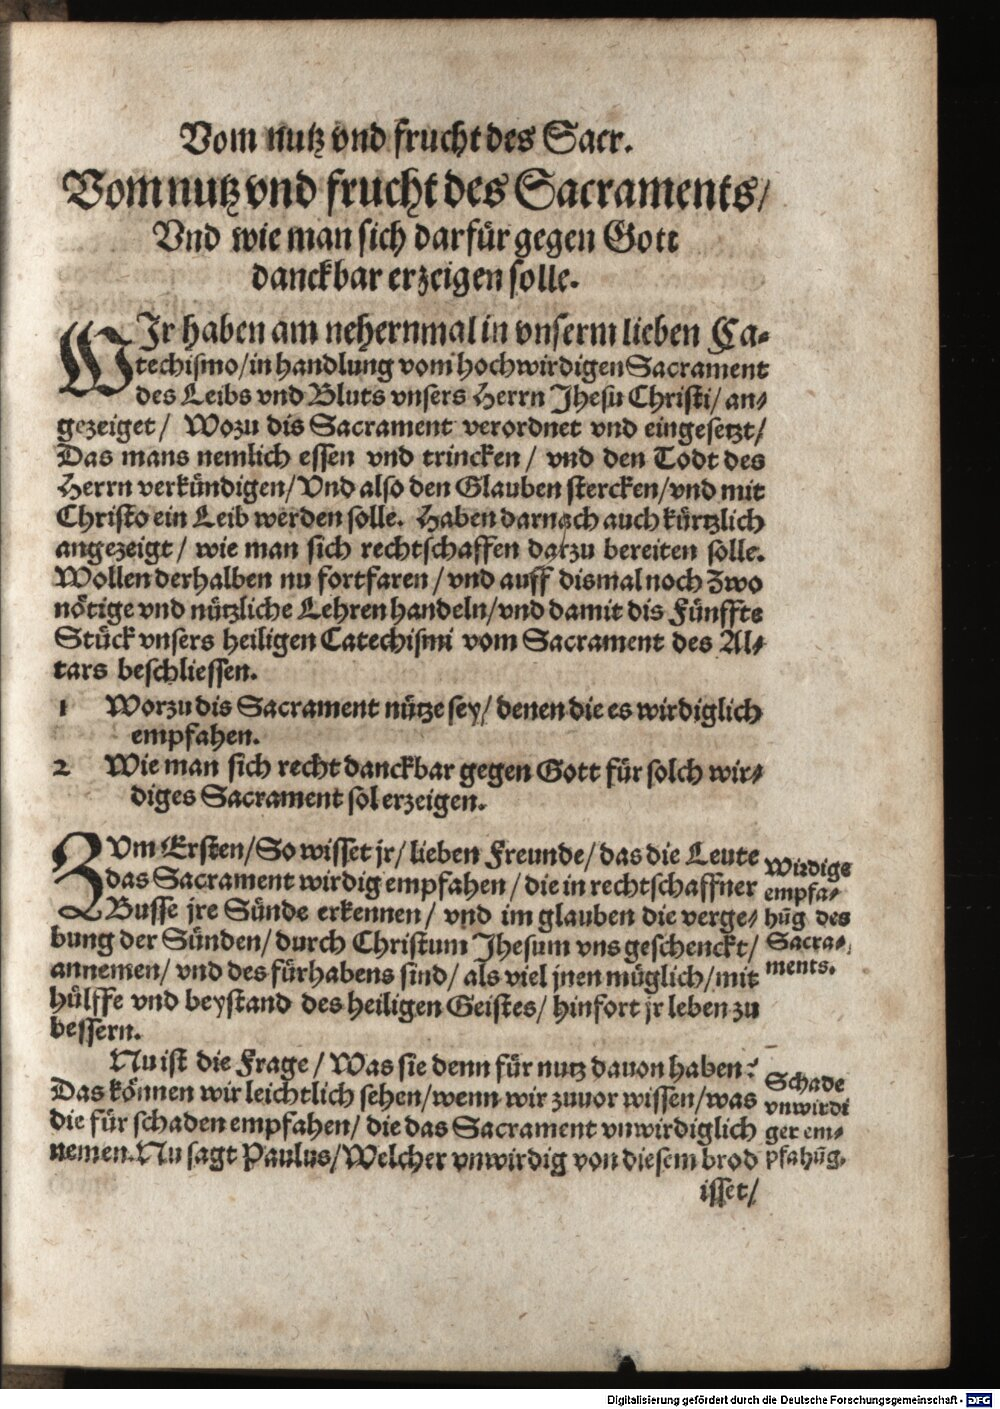 Vom nutz vnd frucht des Sacr.
Vom nutz vnd frucht des Sacraments/
Vnd wie man sich darfür gegen Gott
danckbar erzeigen solle.
WIr haben am nehernmal in vnserm lieben Ca-
techismo/in handlung vom hochwirdigen Sacrament
des Leibs vnd Bluts vnsers Herrn Jhesu Christi/ an-
gezeiget/ Wozu dis Sacrament verordnet vnd eingesetzt/
Das mans nemlich essen vnd trincken/ vnd den Todt des
Herrn verkündigen/Vnd also den Glauben stercken/vnd mit
Christo ein Leib werden solle. Haben darnach auch kürtzlich
angezeigt/ wie man sich rechtschaffen darzu bereiten solle.
Wollen derhalben nu fortfaren/vnd auff dismal noch Zwo
nötige vnd nützliche Lehren handeln/vnd damit dis Fünffte
Stück vnsers heiligen Catechismi vom Sacrament des Al-
tars beschliessen.
1 Worzu dis Sacrament nütze sey/ denen die es wirdiglich
empfahen.
2 Wie man sich recht danckbar gegen Gott für solch wir-
diges Sacrament sol erzeigen.
ZVm Ersten/So wisset jr/ lieben Freunde/das die Leute
das Sacrament wirdig empfahen/die in rechtschaffner
Busse jre Sünde erkennen/ vnd im glauben die verge-
bung der Sünden/durch Christum Jhesum vns geschenckt/
annemen/vnd des fürhabens sind/ als viel jnen müglich/mit
hülffe vnd beystand des heiligen Geistes/ hinfort jr leben zu
bessern.
Wirdige
empfa-
hũg des
Sacra-
ments.
Nu ist die Frage/ Was sie denn für nutz dauon haben?
Das können wir leichtlich sehen/wenn wir zuuor wissen/was
die für schaden empfahen/ die das Sacrament vnwirdiglich
nemen. Nu sagt Paulus/Welcher vnwirdig von diesem brod
isset/
Schade
vnwirdi
ger em-
pfahũg.
Digitalisierung gefördert durch die Deutsche Forschungsgemeinschaft - DFG